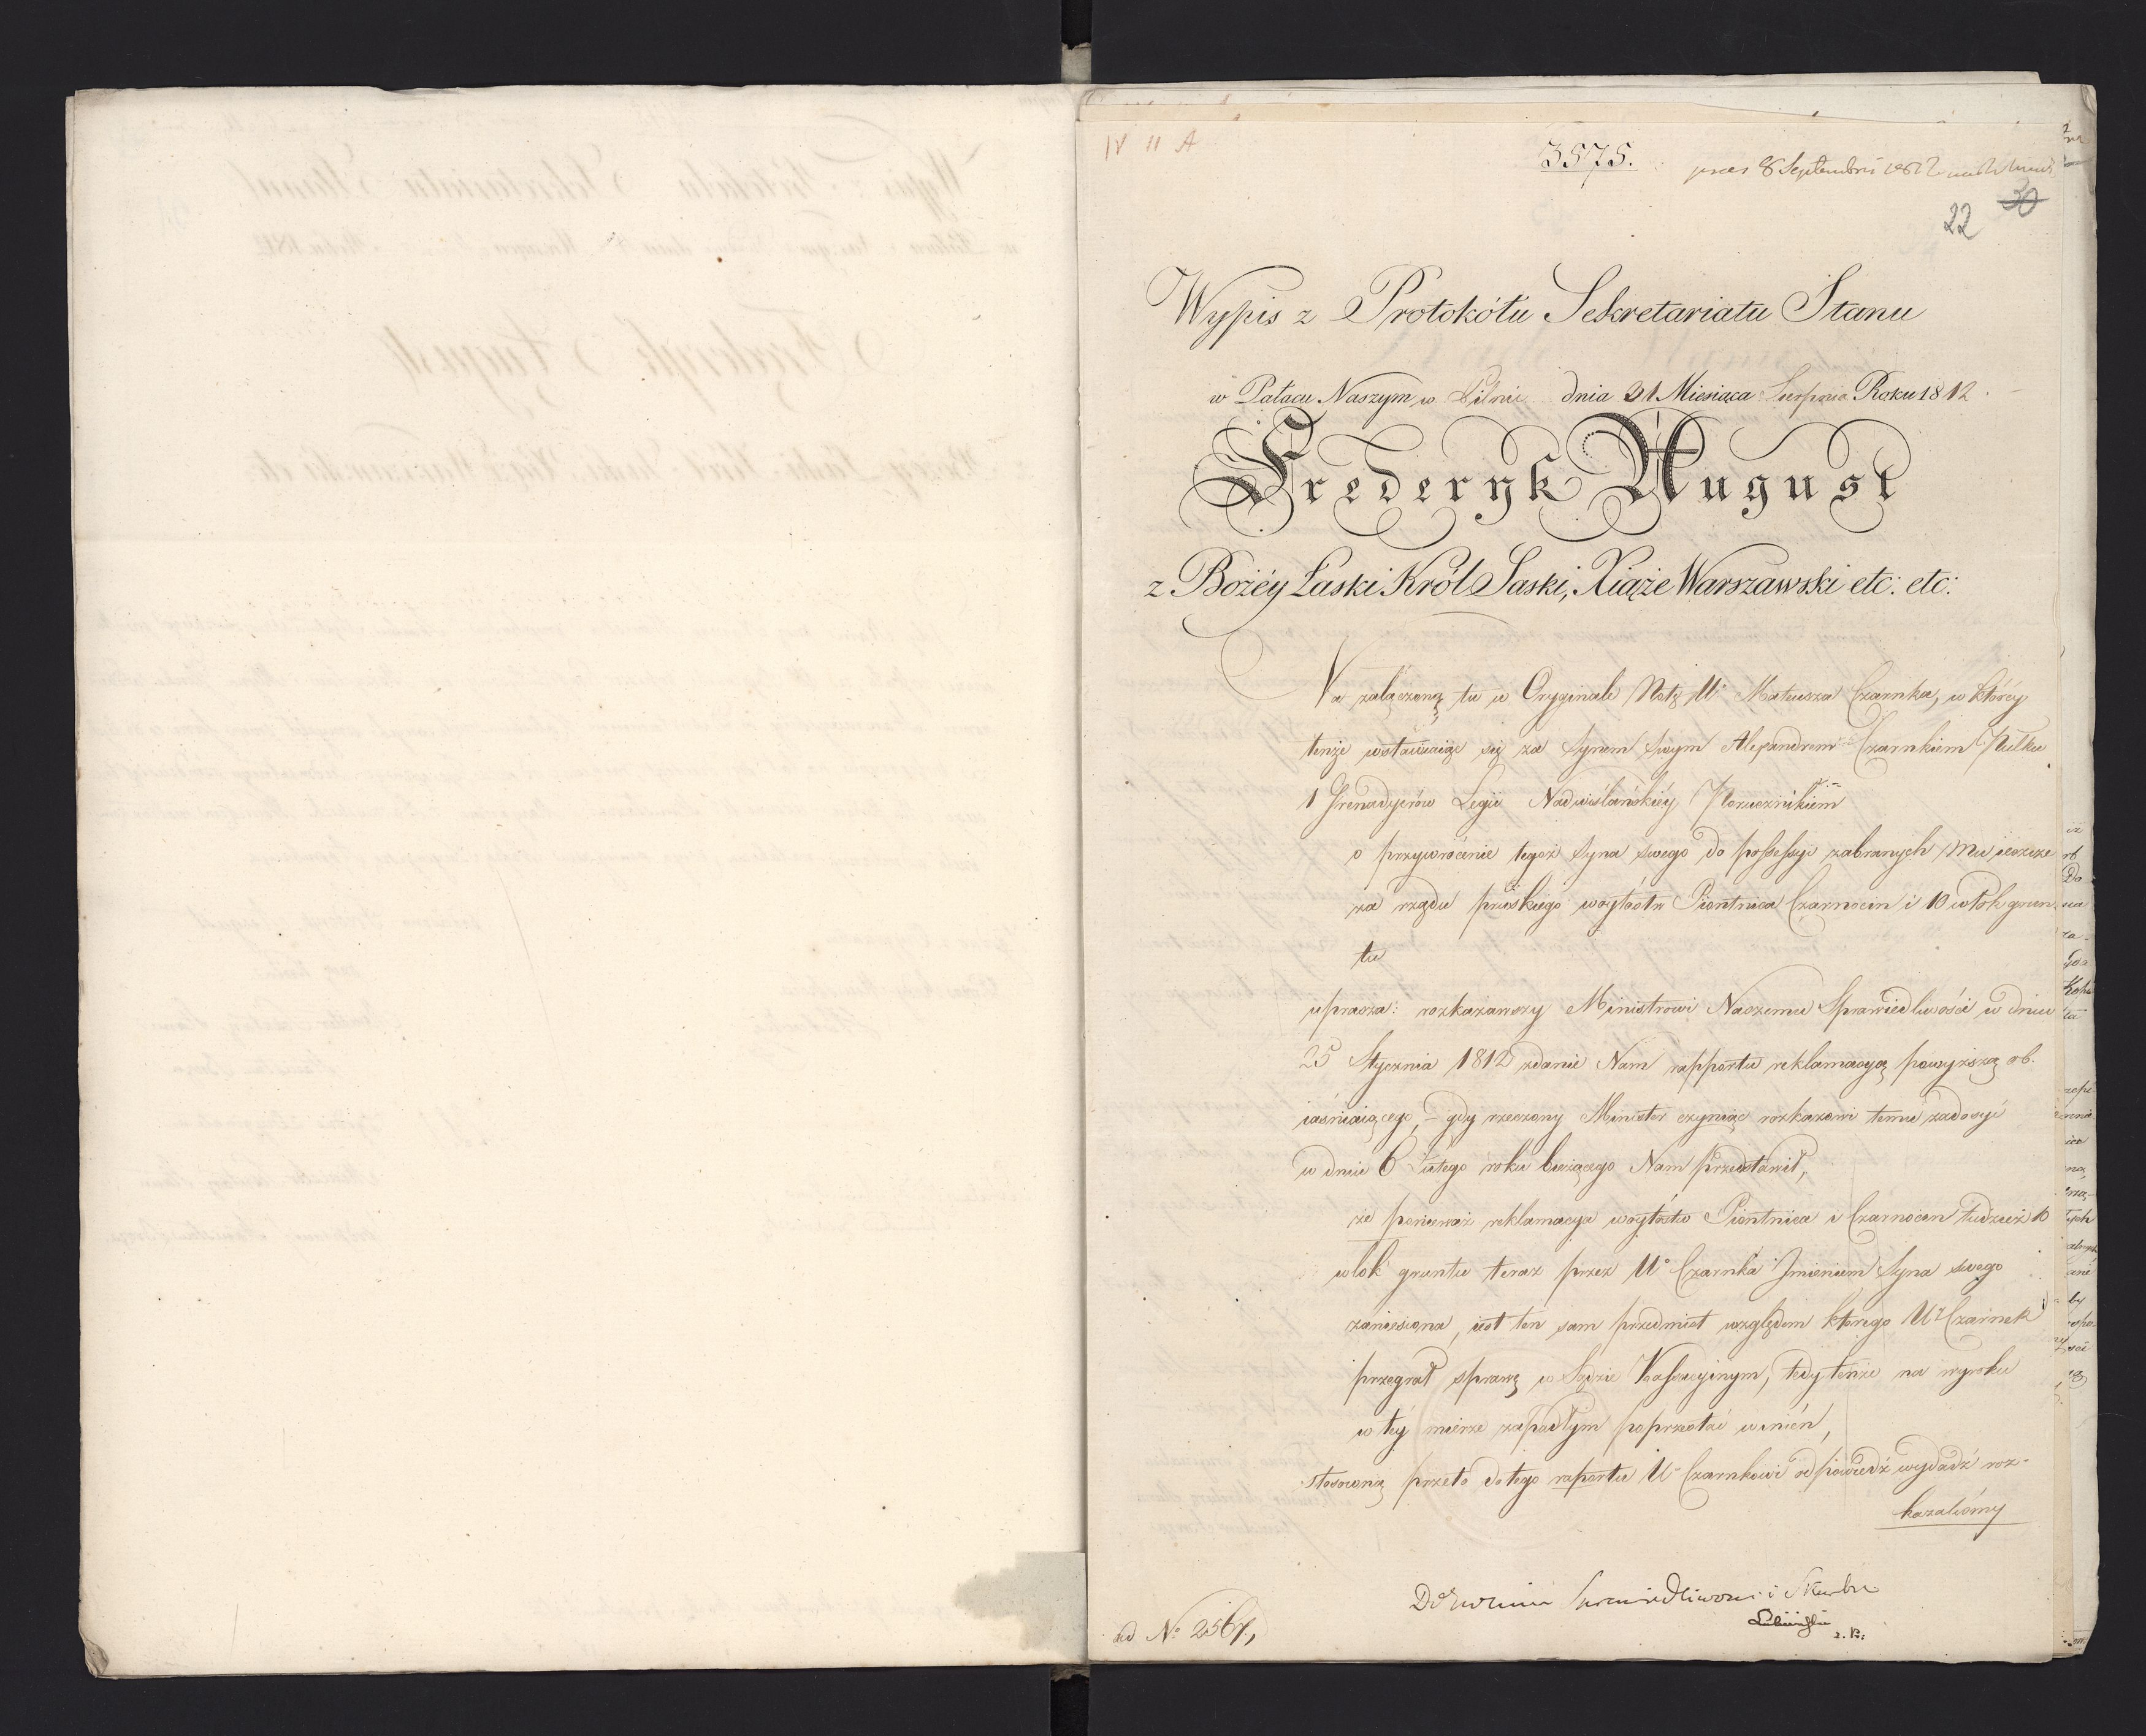 IV II A
3575.
praes 8 Septembris 1812
30
22
Wypis z Protokołu Sekretariatu Stanu
w Pałacu Naszym w Pilnic dnia 31 Miesiąca Sierpnia Roku 1812
Frederyk August
z Bożéy Łaski Król Saski, Xiąże Warszawski etc: etc:
Na załączoną tu w Oryginale Notę Uo Mateusza Czarnka, w któréy
tenże wstawiaiąc się za Synem swym Alexandrem Czarnkiem Pułku
1 Grenadyerów Legii Nadwiślańskiéy Porucznikiem
o przywrócenie tegoż Syna swego do possessyi zabranych mu ieszcze
za rządu pruskiego woytostw Piontnica Czarnocin i 10 włok grun
tu
uprasza: rozkazawszy Ministrowi Naszemu Sprawiedliwości w dniu
25 Stycznia 1812 zdanie Nam rapportu reklamacyą powyższą ob-
iaśniaiącego, gdy rzeczony Minister czyniąc rozkazowi temu zadosyć
w dniu 6 Lutego roku bieżącego Nam przedstawił,
że ponieważ reklamacya woytostw Piontnica i Czarnocin tudzież 10
włok gruntu teraz przez Uo Czarnka Imieniem Syna swego
zaniesiona, iest ten sam przedmiot względem którego Ur Czarnek
przegrał sprawę w Sądzie Kassacyinym, tedy tenże na wyroku
w téy mierze zapadłym poprzestać winien,
stosowną przeto do tego raportu Uo Czarnkowi odpowiedź wydadź roz-
kazaliśmy
Do Sprawiedliwości i Skarbu
ad No 2567,